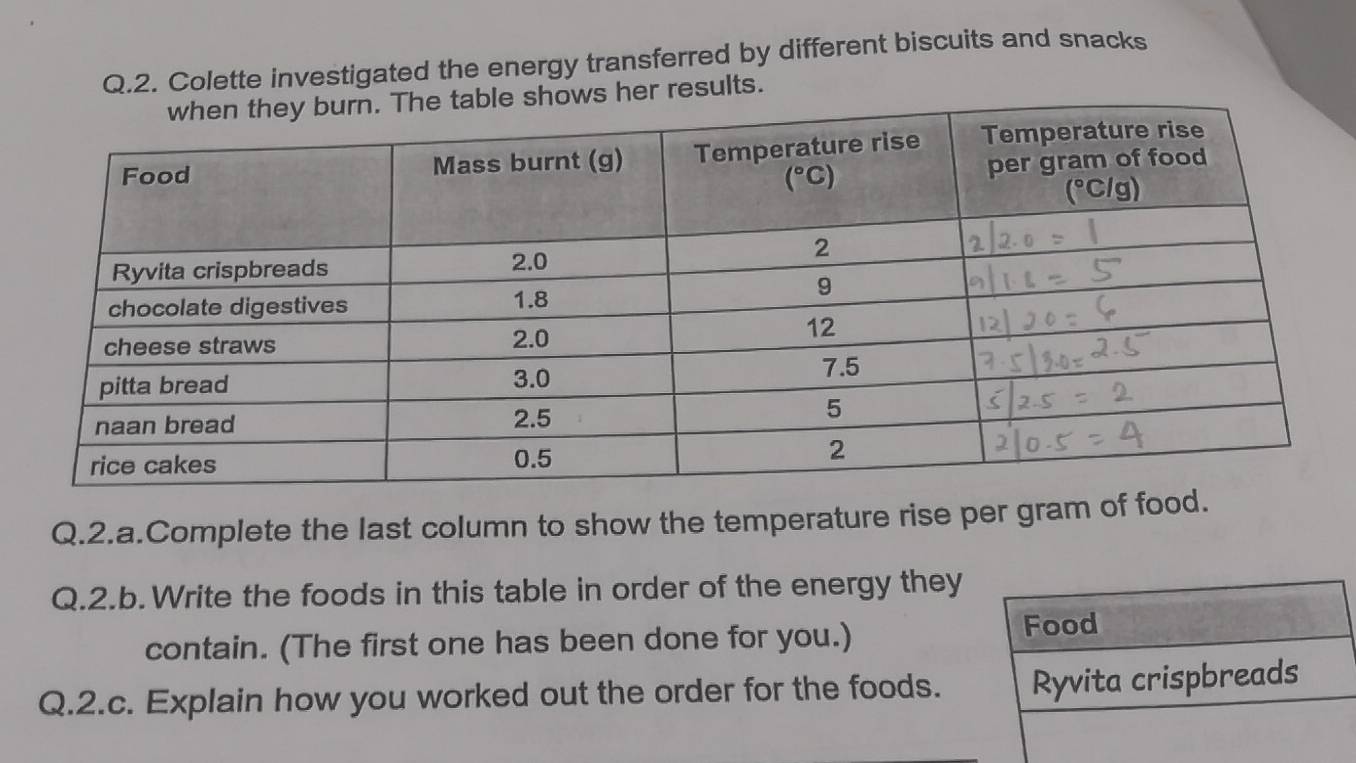 Q.2. Colette investigated the energy transferred by different biscuits and snacks
when they burn. The table shows her results.
Food Mass burnt (g) Temperature rise (°C) Temperature rise per gram of food (°C/g)
Ryvita crispbreads 2.0 2 2/2.0 = 1
chocolate digestives 1.8 9 9/1.8 = 5
cheese straws 2.0 12 12/20 = 6
pitta bread 3.0 7.5 7.5/3.0 = 2.5
naan bread 2.5 5 5/2.5 = 2
rice cakes 0.5 2 2/0.5 = 4
Q.2.a.Complete the last column to show the temperature rise per gram of food.
Q.2.b. Write the foods in this table in order of the energy they
contain. (The first one has been done for you.)
Q.2.c. Explain how you worked out the order for the foods.
Food
Ryvita crispbreads